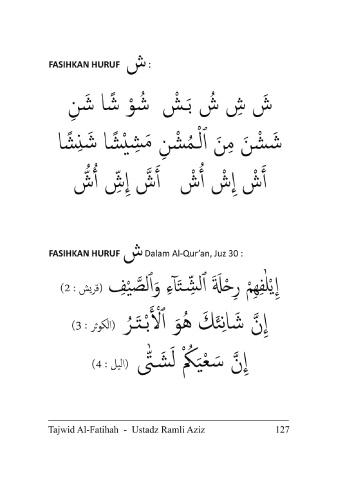 FASIHKAN HURUF ش :
شَ شِ شُ بَـشْ شُوْ شًا شَنِ
شَشْنَ مِنَ ٱلْمُشْنِ مَشِيْشًا شَنِشًا
أَشْ إِشْ أُشْ أَشَّ إِشِّ أُشُّ
FASIHKAN HURUF ش Dalam Al-Qur’an, Juz 30 :
إِيْلَٰفِهِمْ رِحْلَةَ ٱلشِّتَآءِ وَٱلصَّيْفِ (قريش : 2)
إِنَّ شَانِئَكَ هُوَ ٱلْأَبْتَـرُ (الكوثر : 3)
إِنَّ سَعْيَكُمْ لَشَتَّىٰ (الليل : 4)
Tajwid Al-Fatihah - Ustadz Ramli Aziz 127